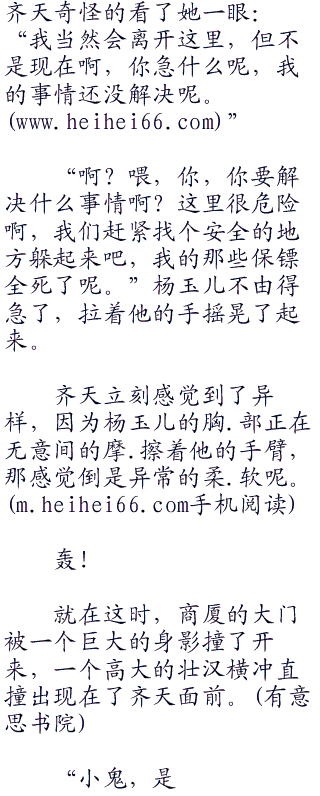 齐天奇怪的看了她一眼：
“我当然会离开这里，但不
是现在啊，你急什么呢，我
的事情还没解决呢。
(www.heihei66.com)”
“啊？喂，你，你要解
决什么事情啊？这里很危险
啊，我们赶紧找个安全的地
方躲起来吧，我的那些保镖
全死了呢。”杨玉儿不由得
急了，拉着他的手摇晃了起
来。
齐天立刻感觉到了异
样，因为杨玉儿的胸.部正在
无意间的摩.擦着他的手臂，
那感觉倒是异常的柔.软呢。
(m.heihei66.com手机阅读)
轰！
就在这时，商厦的大门
被一个巨大的身影撞了开
来，一个高大的壮汉横冲直
撞出现在了齐天面前。(有意
思书院)
“小鬼，是